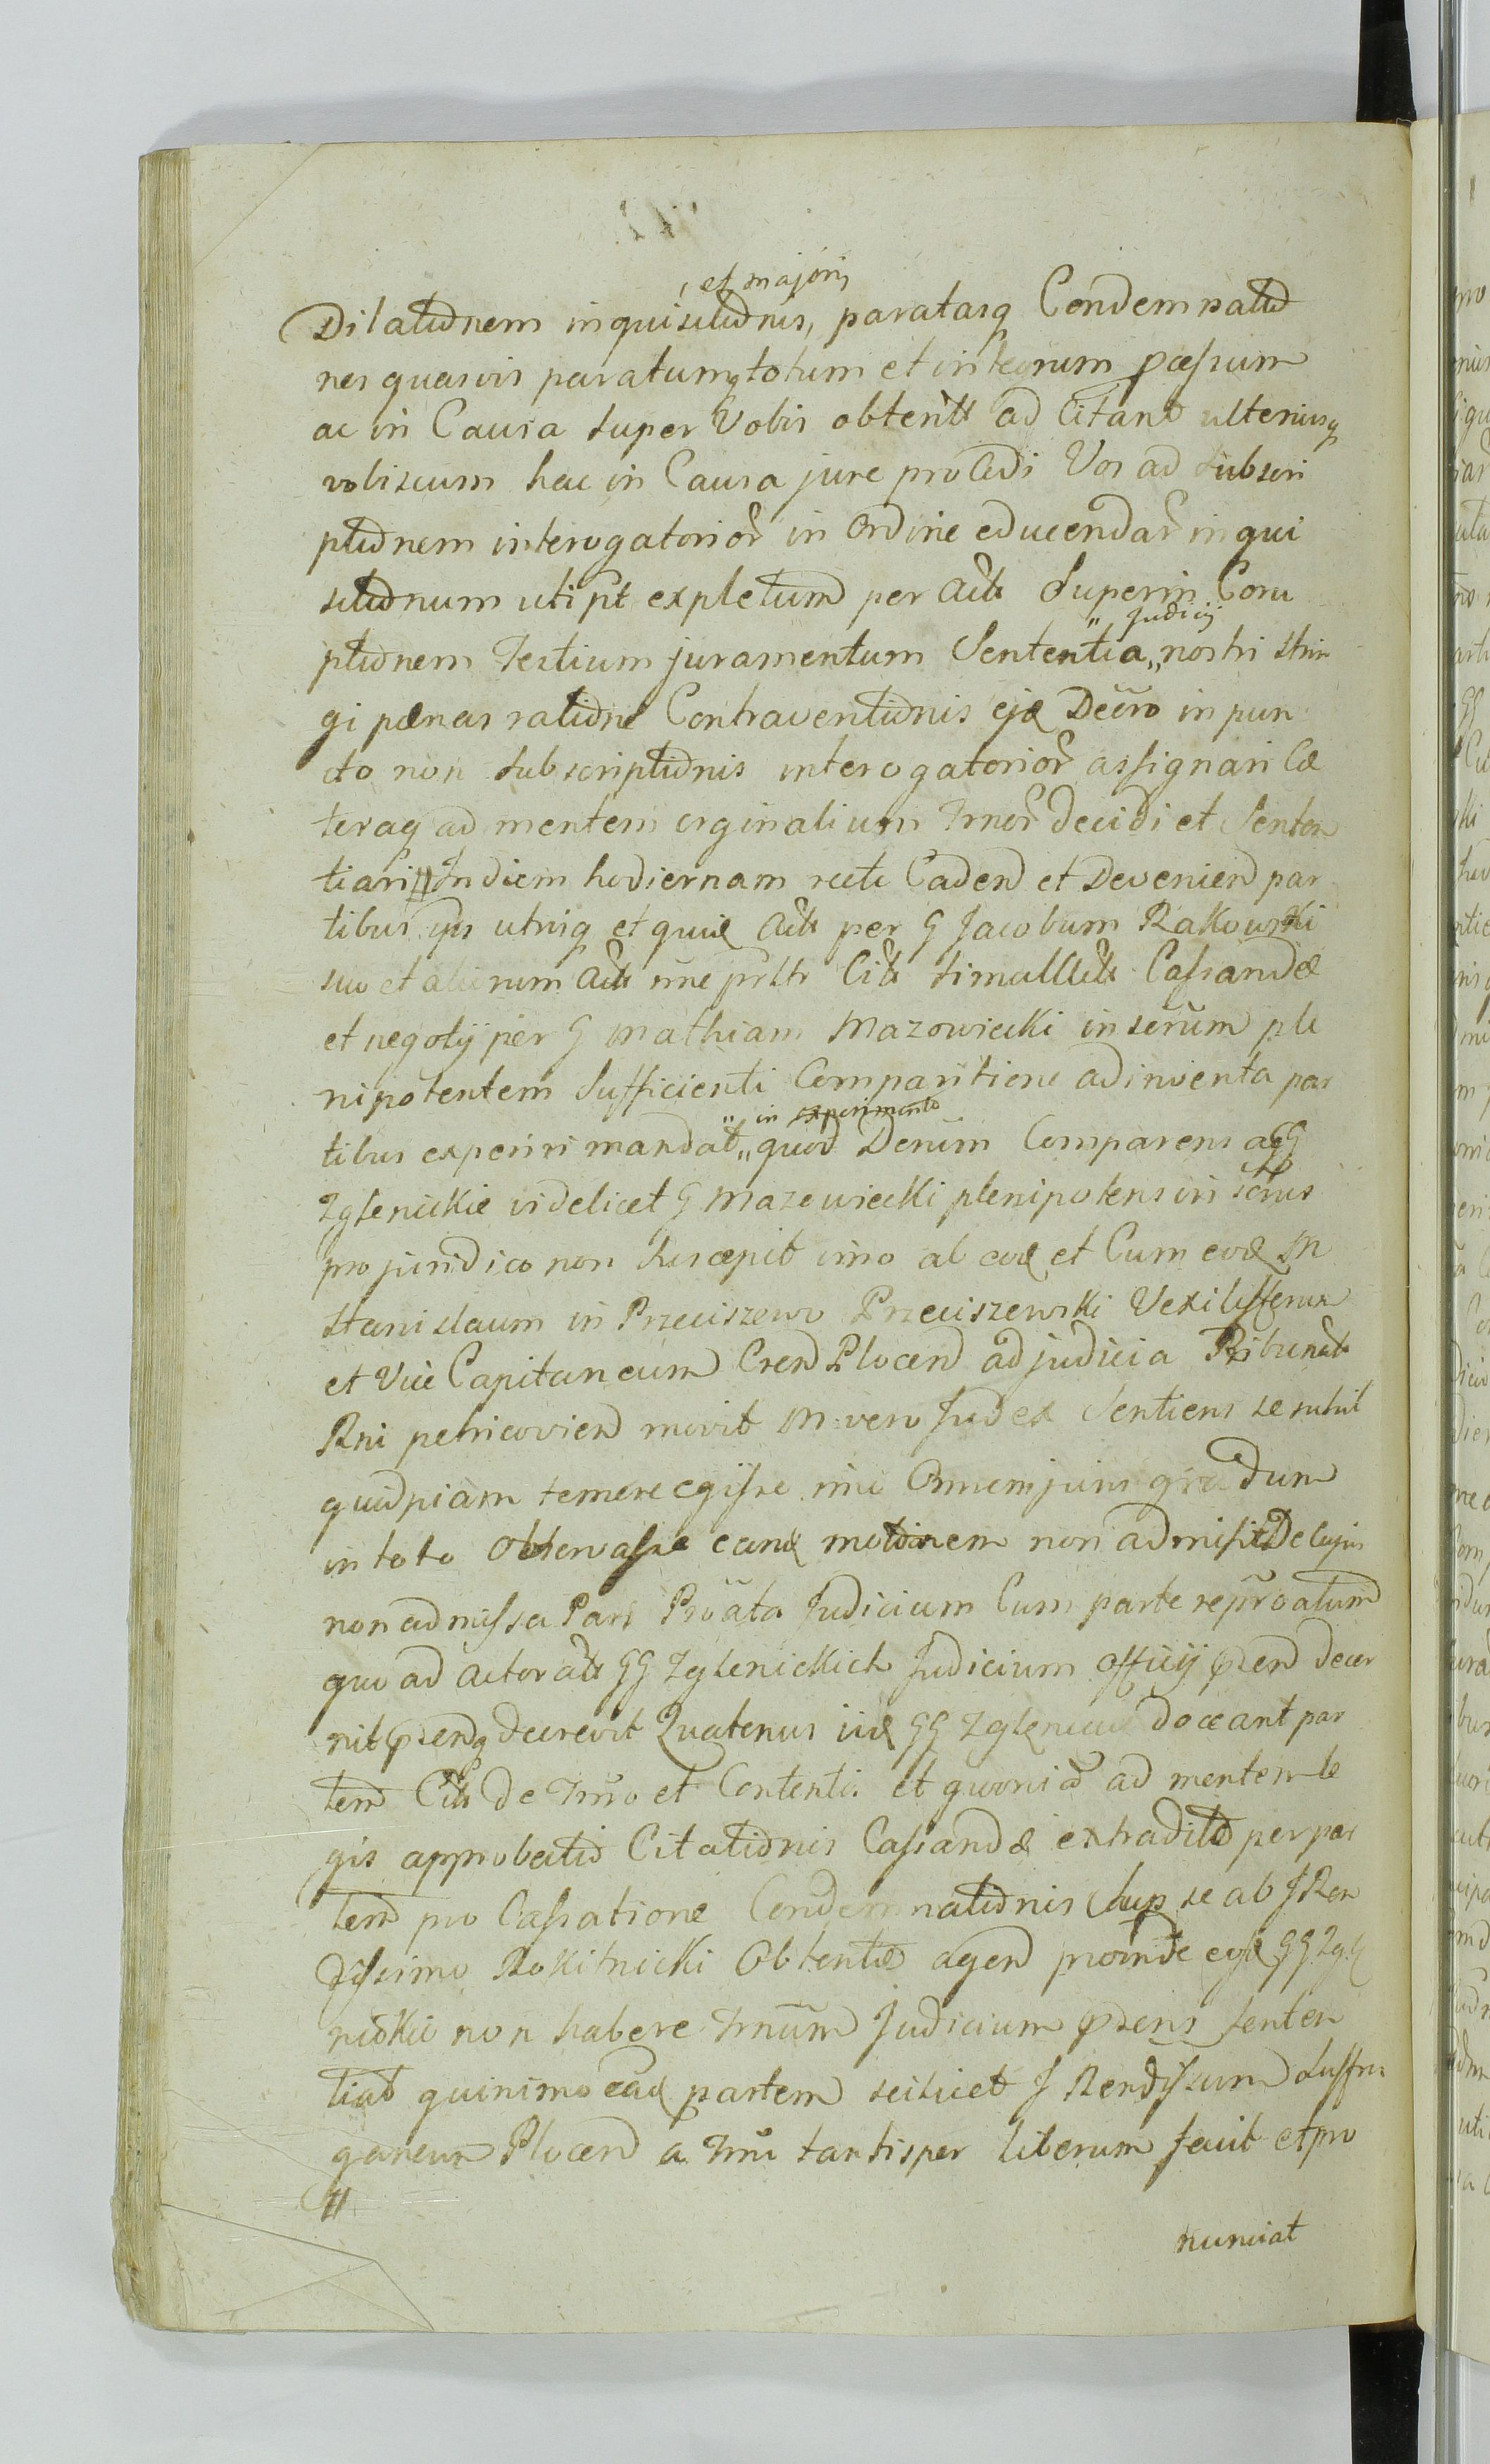 et majoris
Dilationem inquisitionis, paratasq Condemnatio
nes quasvis paratumq totum et integrum processum
ac in Causa super Vobis obtent ad Citand ulteriusq
vobiscum hac in Causa jure procedi Vos ad subscri
ptionem interogatorior in ordine educendar inqui
sitionum uti pt expletum per Act Superin Coru
ptionem Testium juramentum Sententia „ nostri strin
„ Judicij
gi pænas ratione Contraventionis ejd Decro in pun
cto non subscriptionis interogatorior assignari Cæ
teraq ad mentem orginalium Trnor decidi et Senten
tiari # In diem hodiernam recte Caden et Devenien par
tibus ips utrisq et quid Act per G Jacobum Rakowski
suo et aliorum Act nne Cit simul Act Cassandæ
et negotij per G Mathiam Mazowiecki inserum ple
nipotentem Sufficienti Comparitione adinventa par
tibus experiri mandat „ quod Denim Comparens a GG
„ in experimento
Zglenickie videlicet G Mazowiecki plenipotens in scrus
pro juridico non suscepit imo ab eod et Cum eod M
Stanislaum in Przeciszewo Przeciszewski Vexilifferum
et Vice Capitaneum Cren Plocen ad judicia Tribunal
Rni petricovien movit M vero Judex Sentiens se nihil
quidpiam temere egisse imo Omnem juris gradum
in toto Observasse eand motionem non admisit De cujus
non admissa Pars Proata Judicium Cum parte reproatum
quo ad actorat GG Zglenickich Judicium officij psen decer
nit psenq decrevit Quatenus iid GG Zglenicci doceant par
tem Cit De Trno et Contentis et quoniam ad mentem le
gis approbatio Citationis Cassandæ extradito per par
tem pro Cassatione Condemnationis sup se ab J Ren
dissimo Rokitnicki Obtentæ agen proinde eosd GG Zgle
nickie non habere Trnum Judicium psens senten
tiat quinimo eand partem scilicet J Rendissum Suffra
ganeum Plocen a Trno tantisper liberum facit et pro
#
nunciat